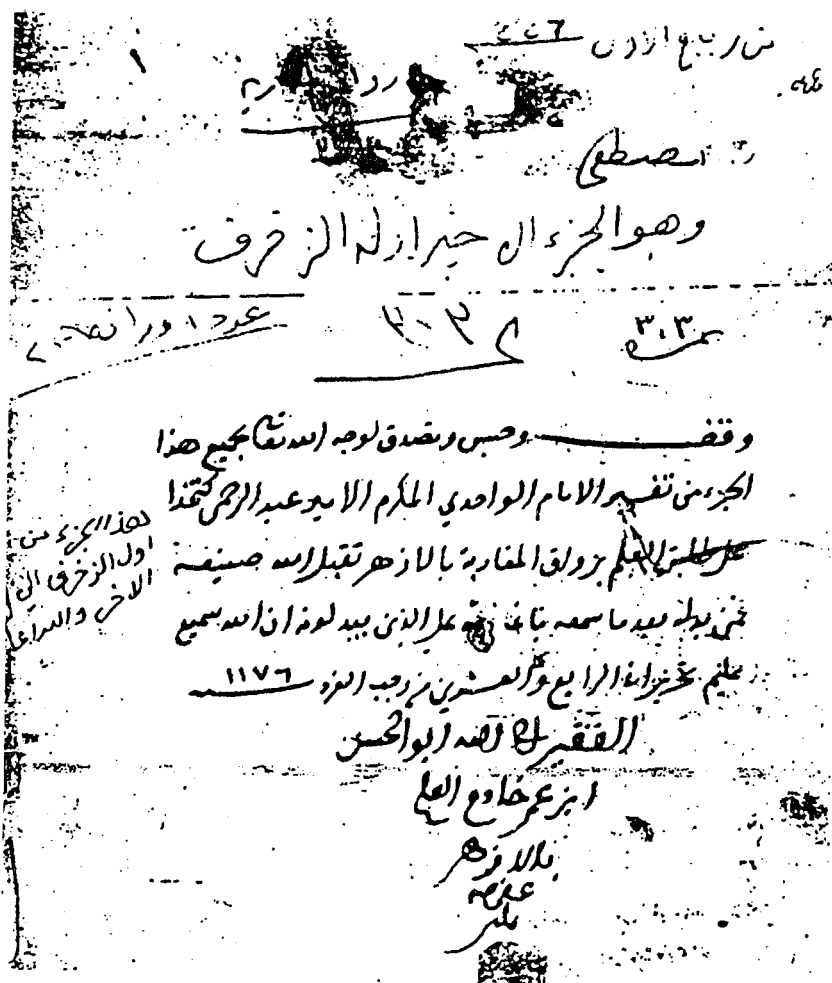 من ربيع الاول
مصطفى
وهو الجزء ال خير اوله الزخرف
نمرة ٣٠٣
٣٠٣
عدد اوراقه
وقف وحبس وتصدق لوجه الله تعا بجميع هذا
الجزء من تفسير الامام الواحدي المكرم الامير عبد الرحمن كتخدا
على طلبة العلم برواق المغاربة بالازهر تقبل الله صنيعه
فمن بدله بعد ما سمعه فانما اثمه على الذين يبدلونه ان الله سميع
عليم الرابع والعشرين من رجب الفرد ١١٧٦
الفقير الى الله ابو الحسن
ابن عمر خادم العلم
بالازهر
هذا الجزء من
اول الزخرف الى
الاخر